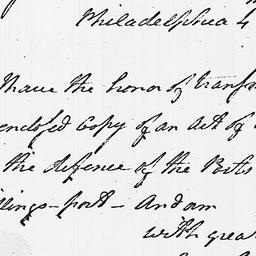 Philadelphia 4
I have the honor of transm
enclosed Copy of an Act of
the defence of the Ports
llings-port - And am
with grea